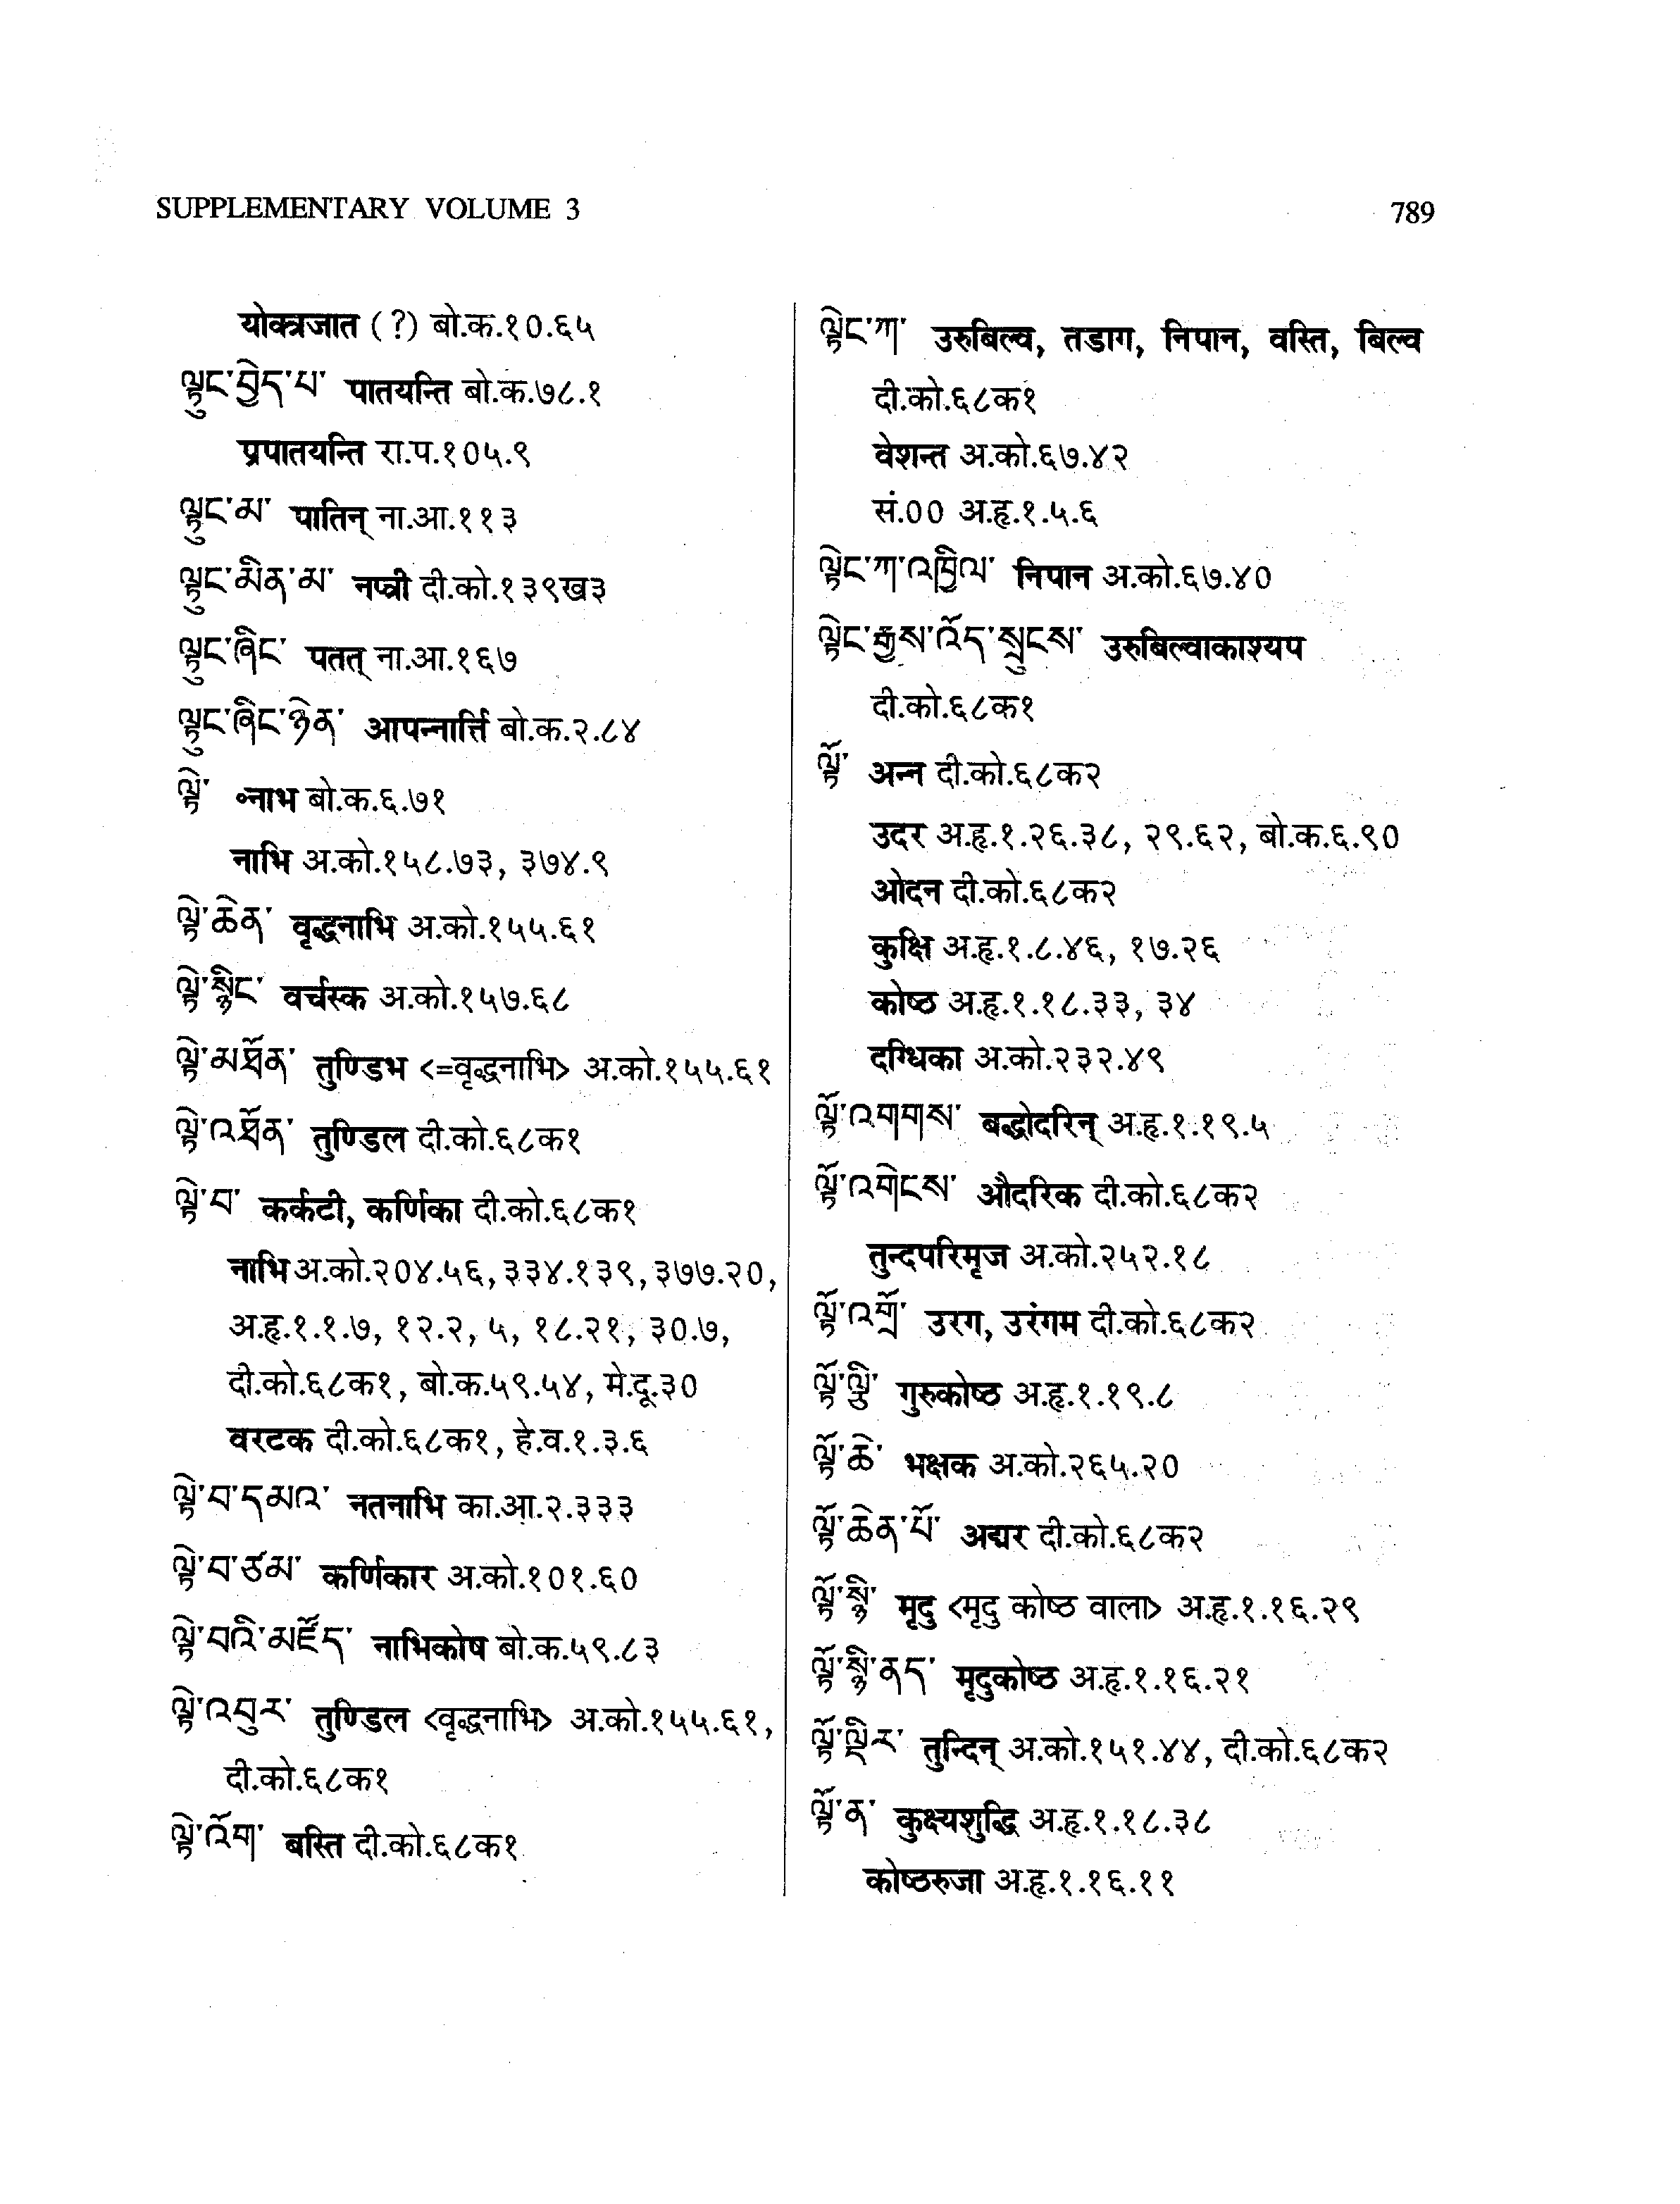 SUPPLEMENTARY VOLUME 3
789
योक्त्रजात (?) बो.क.१०.६५
ལྟུང་བྱེད་པ་ पातयन्ति बो.क.७८.१
प्रपातयन्ति रा.प.१०५.९
ལྟུང་མ་ पातिन् ना.आ.११३
ལྟུང་མིན་མ་ नप्त्री दी.को.१३९ख३
ལྟུང་ཞིང་ पतत् ना.आ.१६७
ལྟུང་ཞིང་ཉེན་ आपन्नार्त्ति बो.क.२.८४
ལྟེ་ ॰नाभ बो.क.६.७१
नाभि अ.को.१५८.७३, ३७४.९
ལྟེ་ཆེན་ वृद्धनाभि अ.को.१५५.६१
ལྟེ་སྙིང་ वर्चस्क अ.को.१५७.६८
ལྟེ་མཐོན་ तुण्डिभ <=वृद्धनाभि> अ.को.१५५.६१
ལྟེ་འཐོན་ तुण्डिल दी.को.६८क१
ལྟེ་བ་ कर्कटी, कर्णिका दी.को.६८क१
नाभि अ.को.२०४.५६, ३३४.१३९, ३७७.२०,
अ.हृ.१.१.७, १२.२, ५, १८.२१, ३०.७,
दी.को.६८क१, बो.क.५९.५४, मे.दू.३०
वरटक दी.को.६८क१, हे.व.१.३.६
ལྟེ་བ་དམའ་ नतनाभि का.आ.२.३३३
ལྟེ་བ་ཙམ་ कर्णिकार अ.को.१०१.६०
ལྟེ་བའི་མཛོད་ नाभिकोष बो.क.५९.८३
ལྟེ་འབུར་ तुण्डिल <वृद्धनाभि> अ.को.१५५.६१,
दी.को.६८क१
ལྟེ་འོག་ बस्ति दी.को.६८क१
ལྟེང་ཀ་ उरुबिल्व, तडाग, निपान, वस्ति, बिल्व
दी.को.६८क१
वेशन्त अ.को.६७.४२
सं.०० अ.हृ.१.५.६
ལྟེང་ཀ་འཁྱིལ་ निपान अ.को.६७.४०
ལྟེང་རྒྱས་འོད་སྲུངས་ उरुबिल्वाकाश्यप
दी.को.६८क१
ལྟོ་ अन्न दी.को.६८क२
उदर अ.हृ.१.२६.३८, २९.६२, बो.क.६.९०
ओदन दी.को.६८क२
कुक्षि अ.हृ.१.८.४६, १७.२६
कोष्ठ अ.हृ.१.१८.३३, ३४
दग्धिका अ.को.२३२.४९
ལྟོ་འགགས་ बद्धोदरिन् अ.हृ.१.१९.५
ལྟོ་འགེངས་ औदरिक दी.को.६८क२
तुन्दपरिमृज अ.को.२५२.१८
ལྟོ་འགྲོ་ उरग, उरंगम दी.को.६८क२
ལྟོ་ལྕི་ गुरुकोष्ठ अ.हृ.१.१९.८
ལྟོ་ཆེ་ भक्षक अ.को.२६५.२०
ལྟོ་ཆེན་པོ་ अद्मर दी.को.६८क२
ལྟོ་སྙི་ मृदु <मृदु कोष्ठ वाला> अ.हृ.१.१६.२९
ལྟོ་སྙི་ནད་ मृदुकोष्ठ अ.हृ.१.१६.२१
ལྟོ་ལྡིར་ तुन्दिन् अ.को.१५१.४४, दी.को.६८क२
ལྟོ་ན་ कुक्ष्यशुद्धि अ.हृ.१.१८.३८
कोष्ठरुजा अ.हृ.१.१६.११